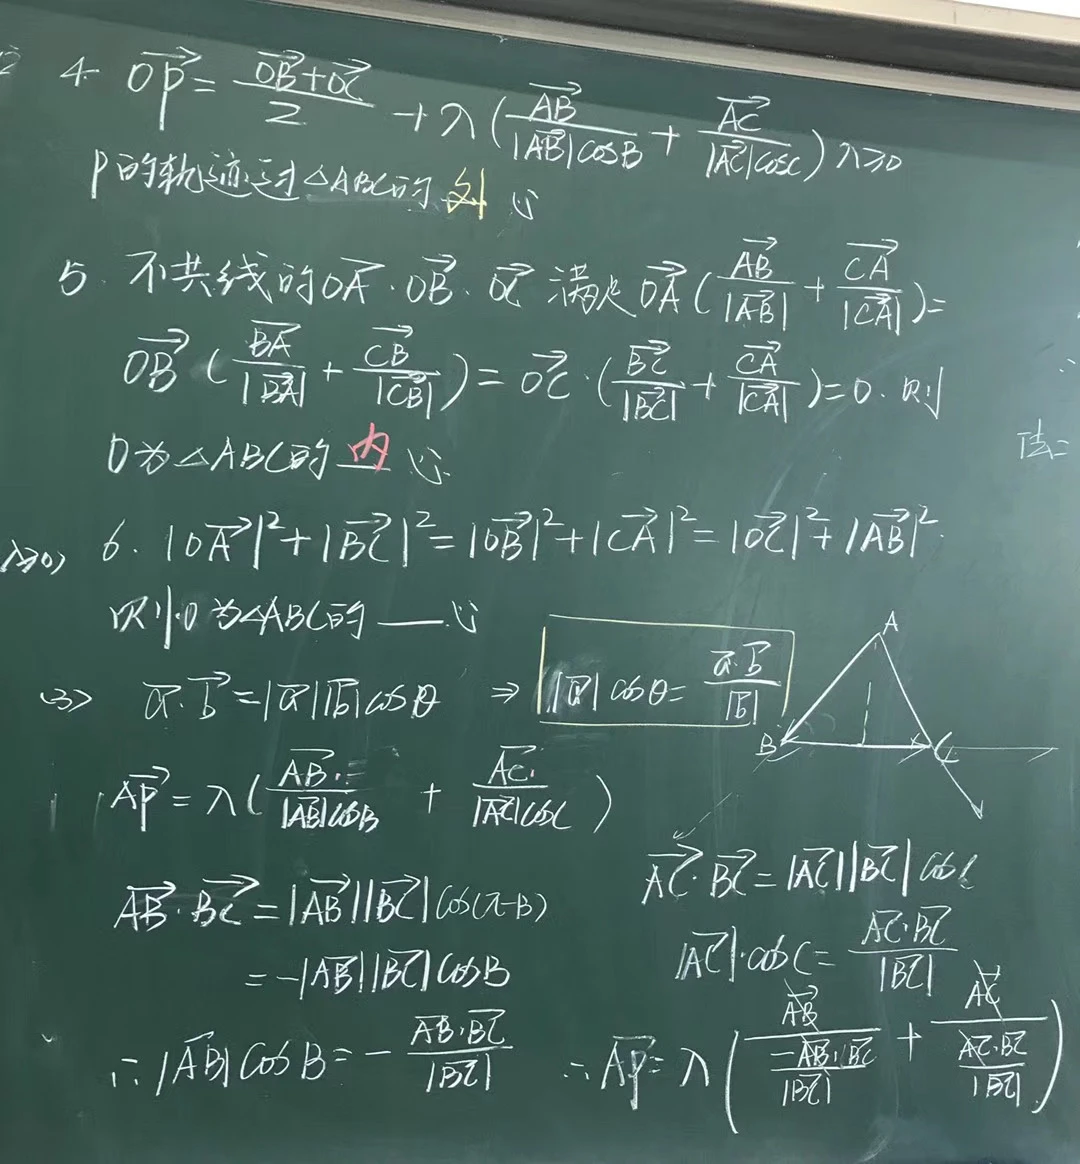 4. \overrightarrow{OP} = \frac{\overrightarrow{OB}+\overrightarrow{OC}}{2} + λ(\frac{\overrightarrow{AB}}{|\overrightarrow{AB}|cosB} + \frac{\overrightarrow{AC}}{|\overrightarrow{AC}|cosC}) λ≥0
P的轨迹过△ABC的 外 心
5. 不共线的\overrightarrow{OA}.\overrightarrow{OB}.\overrightarrow{OC} 满足\overrightarrow{OA}(\frac{\overrightarrow{AB}}{|\overrightarrow{AB}|} + \frac{\overrightarrow{CA}}{|\overrightarrow{CA}|})=
\overrightarrow{OB}(\frac{\overrightarrow{BA}}{|\overrightarrow{BA}|} + \frac{\overrightarrow{CB}}{|\overrightarrow{CB}|}) = \overrightarrow{OC}·(\frac{\overrightarrow{BC}}{|\overrightarrow{BC}|} + \frac{\overrightarrow{CA}}{|\overrightarrow{CA}|})=0. 则
O为△ABC的 内 心
法=
λ≥0)
6. |\overrightarrow{OA}|²+|\overrightarrow{BC}|²=|\overrightarrow{OB}|²+|\overrightarrow{CA}|²=|\overrightarrow{OC}|²+|\overrightarrow{AB}|².
则O为△ABC的 ___心
\overrightarrow{a}·\overrightarrow{b}=|\overrightarrow{a}||\overrightarrow{b}|cosθ ⇒ |\overrightarrow{a}|cosθ= \frac{\overrightarrow{a}·\overrightarrow{b}}{|\overrightarrow{b}|}
A
B
C
\overrightarrow{AP} = λ(\frac{\overrightarrow{AB}·}{|\overrightarrow{AB}|cosB} + \frac{\overrightarrow{AC}·}{|\overrightarrow{AC}|cosC})
\overrightarrow{AB}·\overrightarrow{BC}=|\overrightarrow{AB}||\overrightarrow{BC}|cos(π-B)
=-|\overrightarrow{AB}||\overrightarrow{BC}|cosB
∴|\overrightarrow{AB}|cosB=-\frac{\overrightarrow{AB}·\overrightarrow{BC}}{|\overrightarrow{BC}|}
\overrightarrow{AC}·\overrightarrow{BC}=|\overrightarrow{AC}||\overrightarrow{BC}|cosC
|\overrightarrow{AC}|·cosC=\frac{\overrightarrow{AC}·\overrightarrow{BC}}{|\overrightarrow{BC}|}
∴\overrightarrow{AP}=λ(\frac{\overrightarrow{AB}}{\frac{-\overrightarrow{AB}·\overrightarrow{BC}}{|\overrightarrow{BC}|}} + \frac{\overrightarrow{AC}}{\frac{\overrightarrow{AC}·\overrightarrow{BC}}{|\overrightarrow{BC}|}})